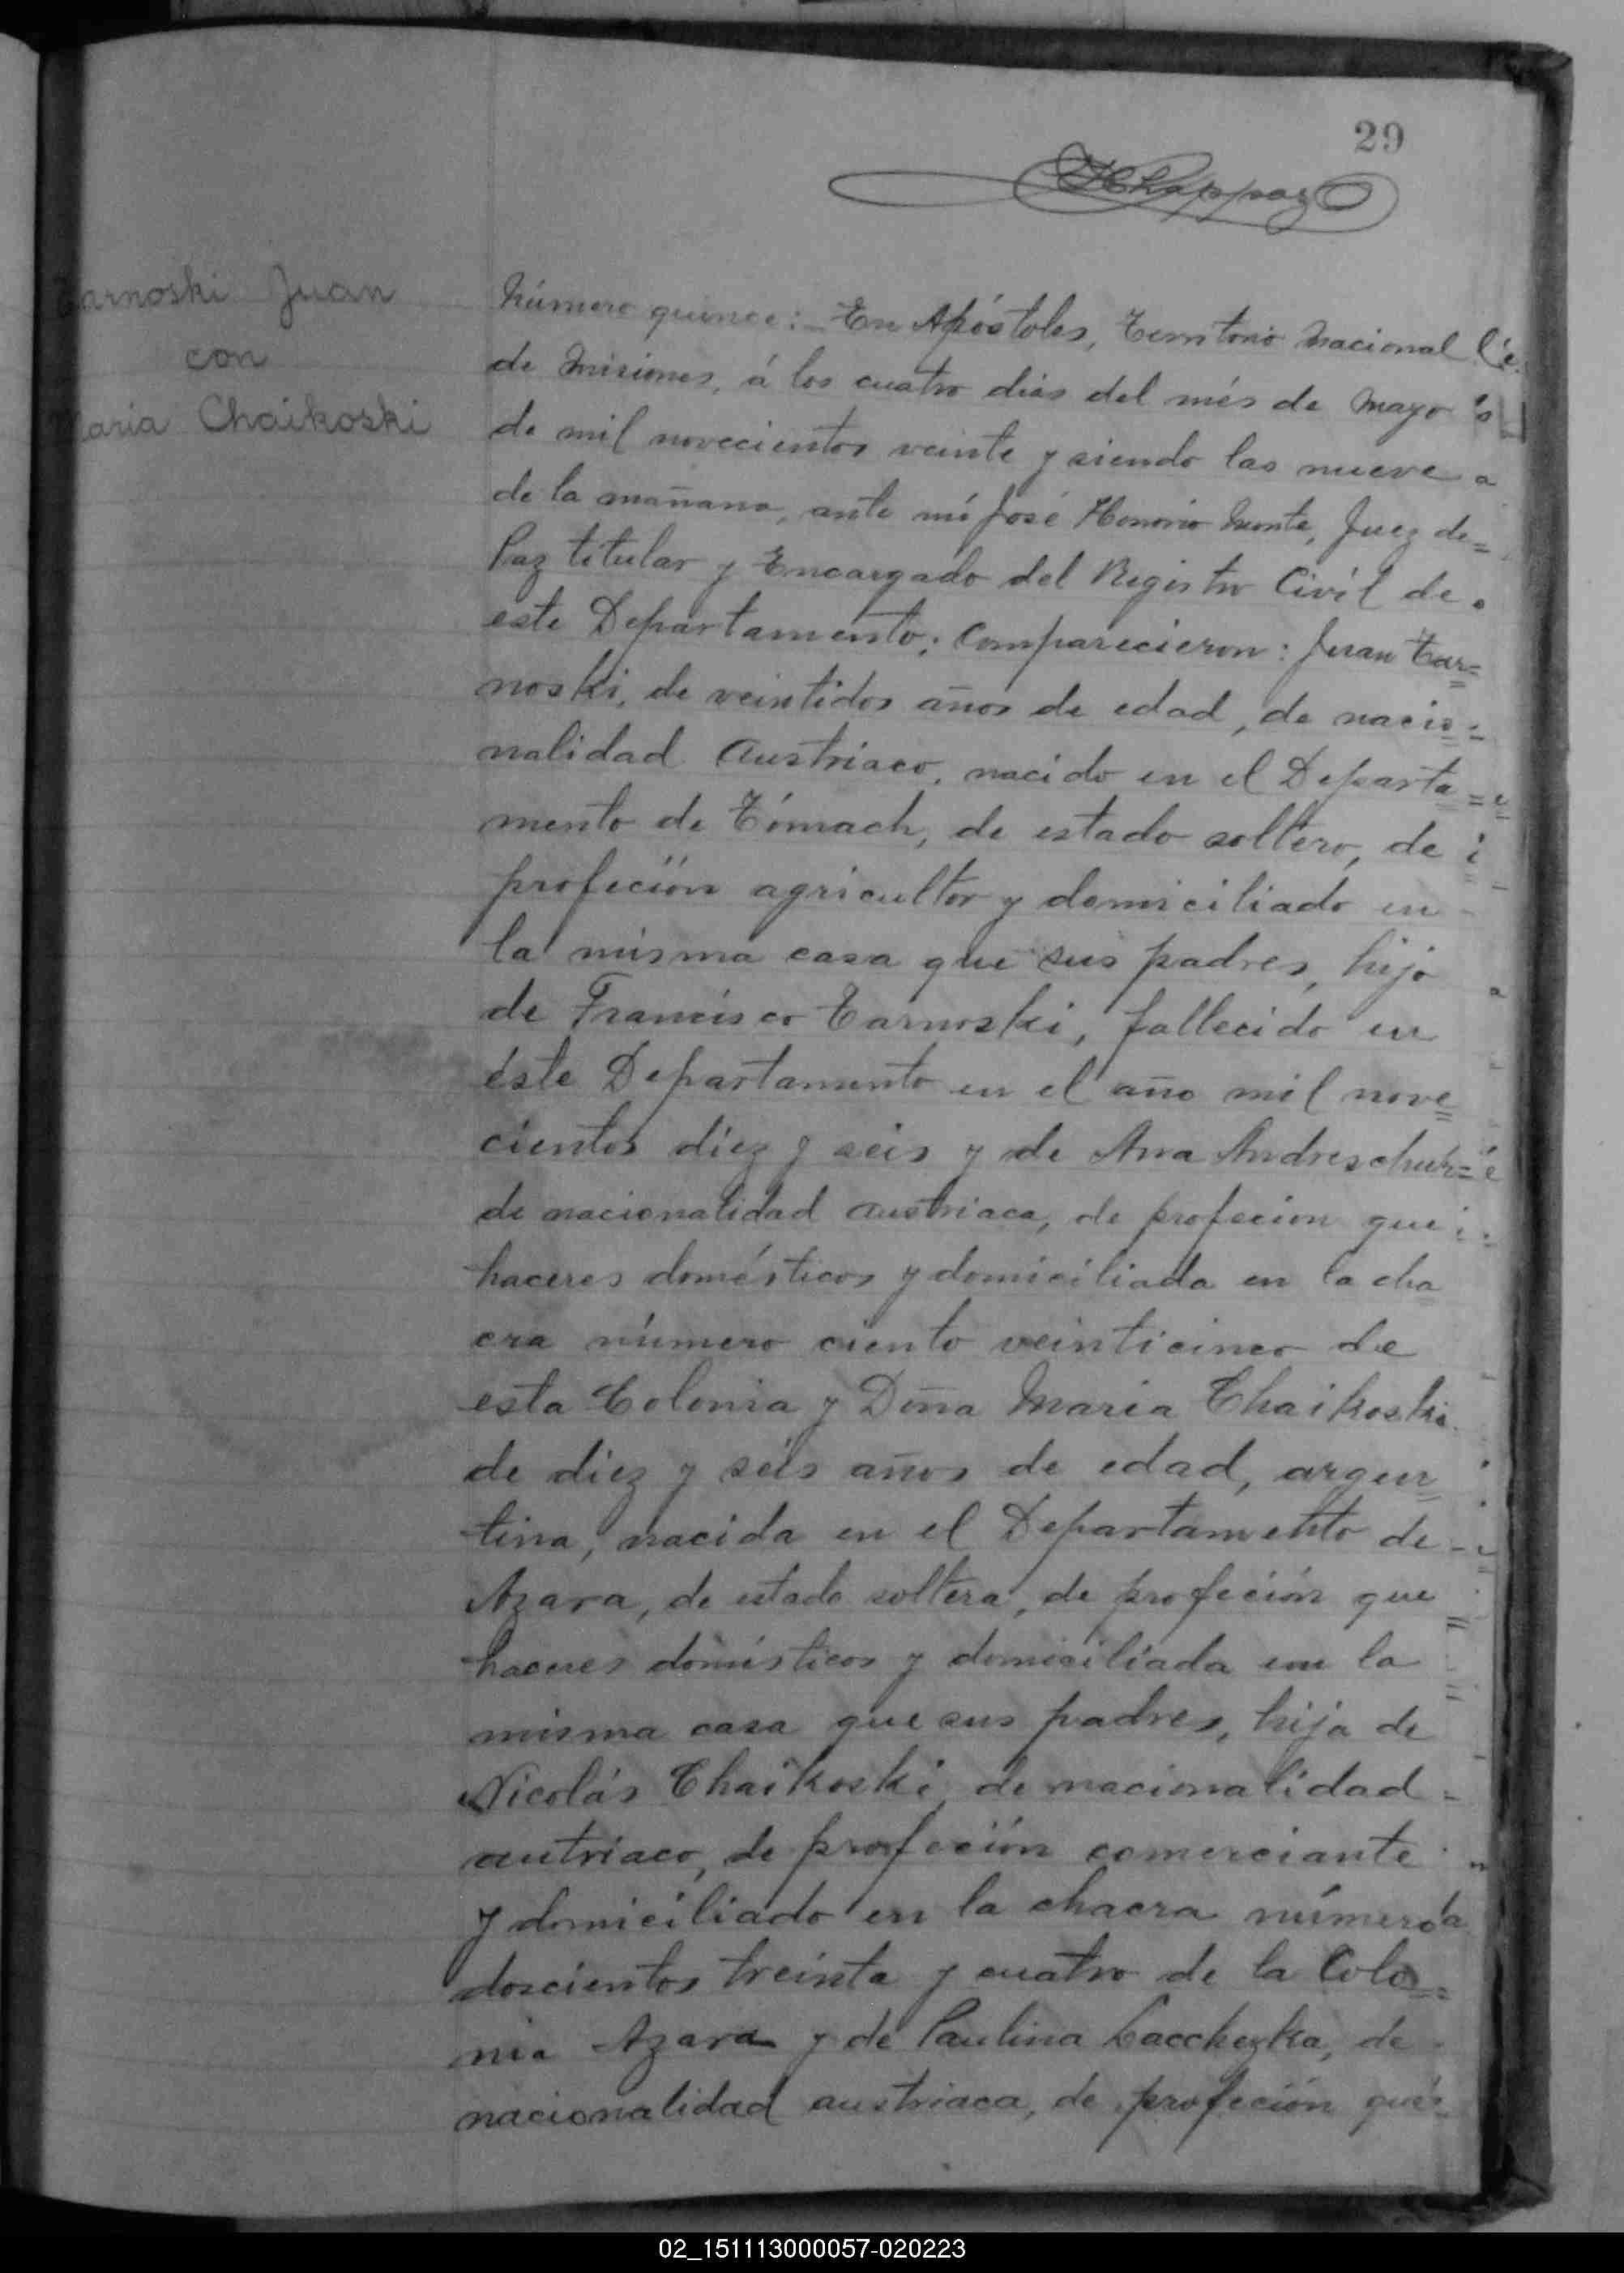 29
Tarnoski Juan
con
Maria Chaikoski
Número quince:- En Apóstoles, Territorio Nacional
de Misiones, á los cuatro dias del més de Mayo
de mil novecientos veinte y siendo las nueve
de la mañana, ante mí José Honorio Monte, Juez de
Paz titular y Encargado del Registro Civil de
este Departamento; Comparecieron: Juan Tar=
noski, de veintidos años de edad, de nacio=
nalidad Austriaco, nacido en el Departa=
mento de Tómach, de estado soltero, de
profeción agricultor y domiciliado en
la misma casa que sus padres, hijo
de Francisco Tarnoski, fallecido en
éste Departamento en el año mil nove=
cientos diez y seis y de Ana Andreschuk=
de nacionalidad austriaca, de profecion que
haceres domésticos y domiciliada en la cha
cra número ciento veinticinco de
esta Colonia y Doña Maria Chaikoski
de diez y séis años de edad, argen=
tina, nacida en el Departamento de
Azara, de estado soltera, de profeción que
haceres domésticos y domiciliada en la
misma casa que sus padres, hija de
Nicolás Chaikoski, de nacionalidad
autriaco, de profeción comerciante
y domiciliado en la chacra número
doscientos treinta y cuatro de la Colo=
nia Azara y de Paulina de
nacionalidad austriaca, de profeción qué=
02_151113000057-020223